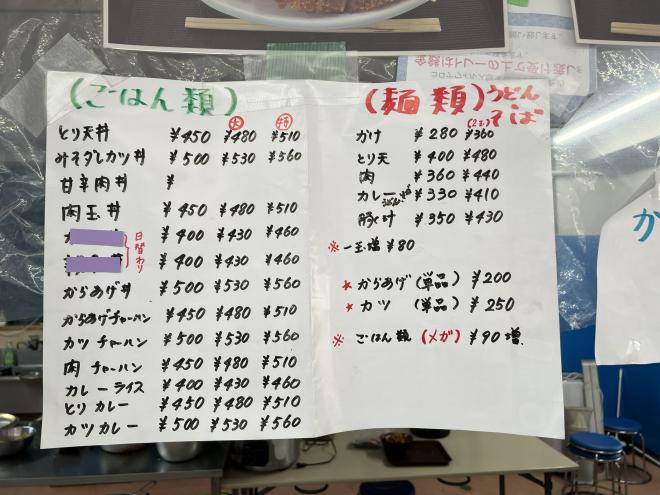 (ごはん類)
大 特
とり天丼 ¥450 ¥480 ¥510
みそダレカツ丼 ¥500 ¥530 ¥560
甘辛肉丼 ¥
肉玉丼 ¥450 ¥480 ¥510
日替わり
¥400 ¥430 ¥460
¥400 ¥430 ¥460
からあげ丼 ¥500 ¥530 ¥560
からあげチャーハン ¥450 ¥480 ¥510
カツチャーハン ¥500 ¥530 ¥560
肉チャーハン ¥450 ¥480 ¥510
カレーライス ¥400 ¥430 ¥460
とりカレー ¥450 ¥480 ¥510
カツカレー ¥500 ¥530 ¥560
(麺類)うどん
そば
かけ ¥280 ¥360
とり天 ¥400 ¥480
肉 ¥360 ¥440
カレー ¥330 ¥410
豚汁 ¥350 ¥430
※一玉増 ¥80
★からあげ(単品) ¥200
★カツ(単品) ¥250
※ごはん類(メガ) ¥90増
か